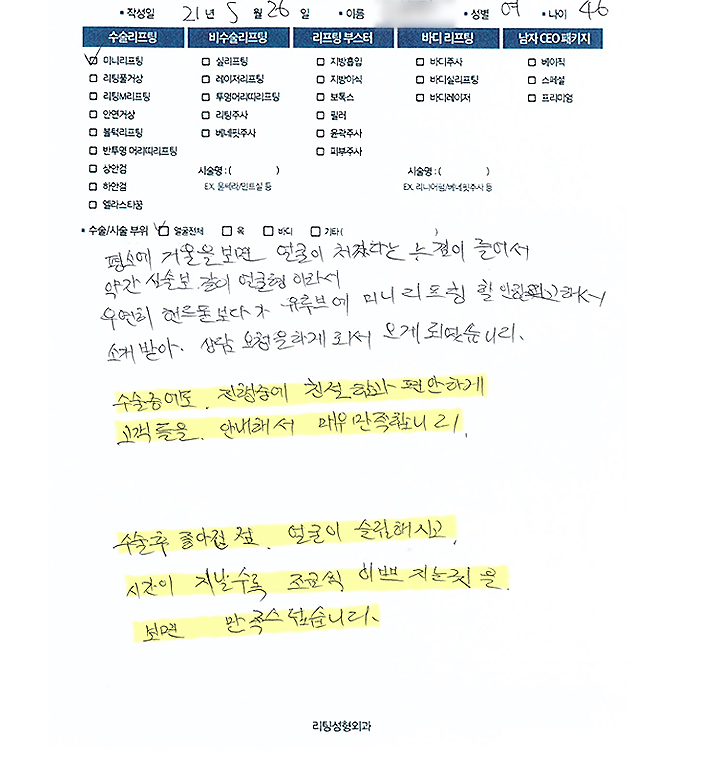 • 작성일 21년 5월 26일 • 이름 • 성별 여 • 나이 46
수술리프팅 비수술리프팅 리프팅 부스터 바디 리프팅 남자 CEO 패키지
미니리프팅 실리프팅 지방흡입 바디주사 베이직
리팅풀거상 레이저리프팅 지방이식 바디실리프팅 스페셜
리팅M리프팅 투명머리띠리프팅 보톡스 바디레이저 프리미엄
안면거상 리팅주사 필러
볼턱리프팅 베네핏주사 윤곽주사
반투명 머리띠리프팅 피부주사
상안검 시술명 : ( ) 시술명 : ( )
하안검 EX. 울쎄라/민트실 등 EX. 리니어펌/베네핏주사 등
엘라스티꿈
• 수술/시술 부위 얼굴전체 목 바디 기타 (
평소에 거울을 보면 얼굴이 처졌다는 느낌이 들어서
약간 심술보 같이 얼굴형이라서
우연히 핸드폰보다가 유튜브에 미니리프팅 할
소개받아. 상담 요청을하게 되서 오게되었습니다.
수술중에도. 진행중에 친절함과 편안하게
고객들을. 안내해서 매우만족합니다.
수술후 좋아진 점. 얼굴이 슬림해지고,
시간이 지날수록 조금씩 이뻐지는것을.
보면 만족스럽습니다.
리팅성형외과